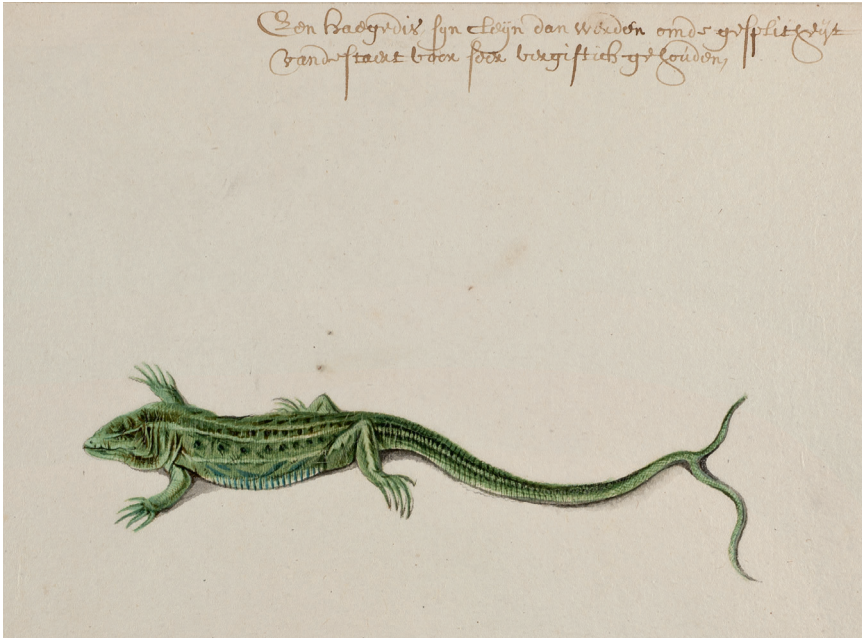 Een haegedis, syn cleyn dan werden omde gespletheyt
vande staert voor seer vergiftich gehouden,